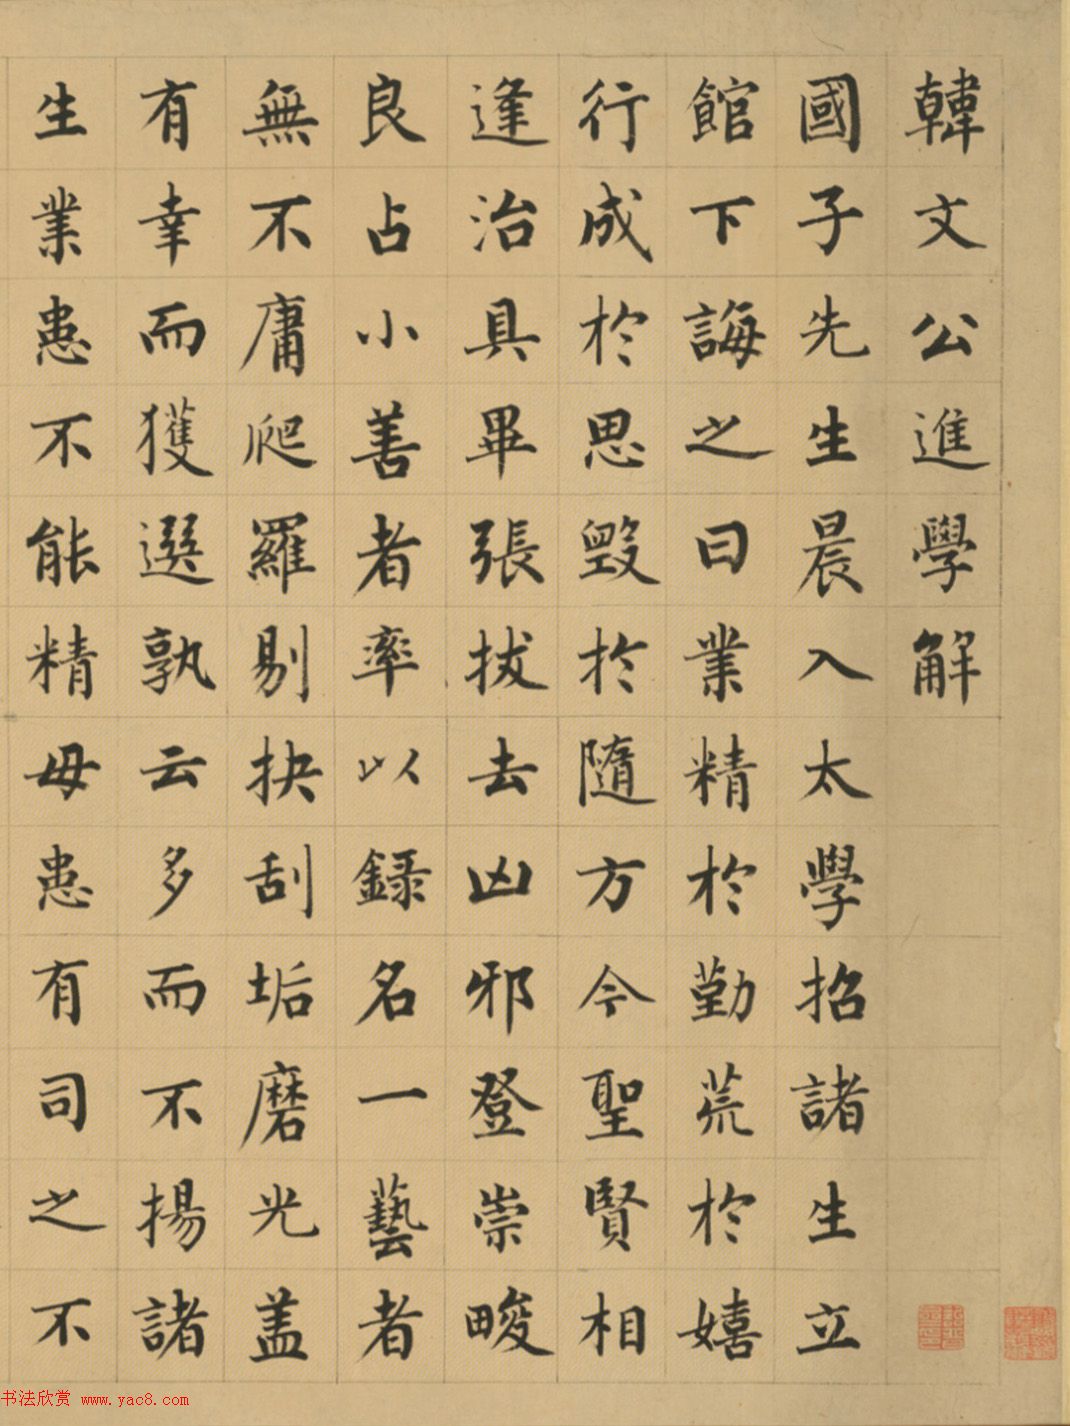 韓文公進學解
國子先生晨入太學招諸生立
館下誨之曰業精於勤荒於嬉
行成於思毀於隨方今聖賢相
逢治具畢張拔去凶邪登崇畯
良占小善者率以錄名一藝者
無不庸爬羅剔抉刮垢磨光盖
有幸而獲選孰云多而不揚諸
生業患不能精毋患有司之不
书法欣赏 www.yac8.com